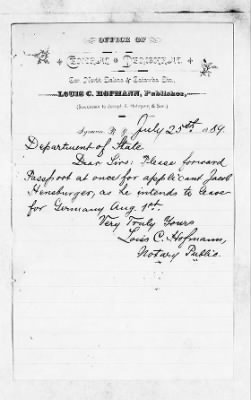 OFFICE OF
Central Demokrat,
Cor. North Salina & Catawba Sts.,
LOUIS C. HOFMANN, Publisher,
(Successor to Joseph A. Hofmann & Son.)
Syracuse, N. Y. July 25th, 1889.
Department of State
Dear Sirs: Please forward
Passport at once for applicant Jacob
Hensburger, as he intends to leave
for Germany Aug 1st.
Very Truly Yours
Louis C. Hofmann,
Notary Public.